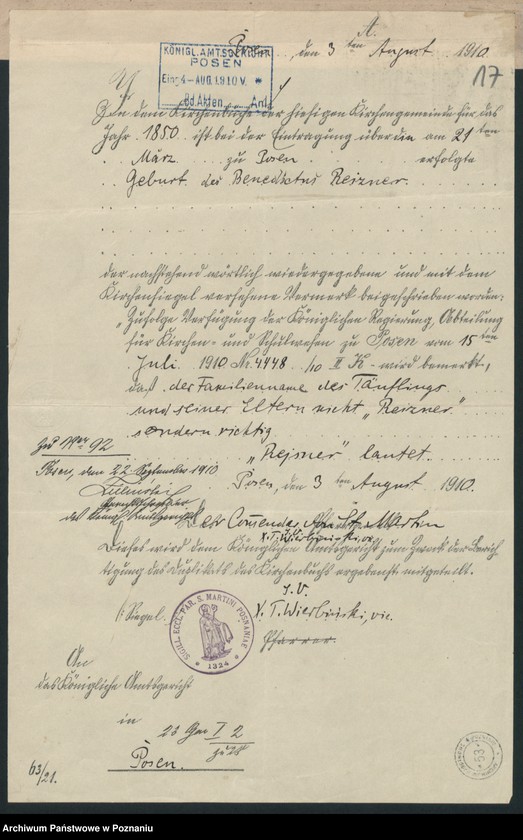 A.
Posen, den 3ten August 1910.
17
KÖNIGL. AMTSGERICHT
POSEN
Eing. 4-AUG.1910 V.
Bd. Akten Anl.
In dem Kirchenbuche der hiesigen Kirchengemeinde für das
Jahr 1850 ist bei der Eintragung über die am 21ten
März zu Posen erfolgte
Geburt des Benedictus Reizner
der nachstehend wörtlich wiedergegebene und mit dem
Kirchensiegel versehene Vermerk beigeschrieben worden:
„Zufolge Verfügung der Königlichen Regierung, Abteilung
für Kirchen- und Schulwesen zu Posen vom 15ten
Juli 1910 No 4448/10 II K. wird bemerkt,
daß der Familienname des Täuflings
und seiner Eltern nicht „Reizner"
sondern richtig
„Rejsner" lautet.
92
Posen, den 22 September 1910
Posen, den 3ten August 1910.
Der Comendar St. Martin
X. T. Wierbiński, vic.
Dieses wird dem Königlichen Amtsgericht zum Zweck der Berich
tigung des Duplikats des Kirchenbuchs ergebenst mitgeteilt.
I.V.
/: Siegel. X. T. Wierbiński, vic.
Pfarrer.
SIGILL. ECCL. PAR. S. MARTINI POSNANIAE
* 1324 *
An
das Königliche Amtsgericht
in
23 Gen I 2
Posen.
63/21.
53
Archiwum Państwowe w Poznaniu